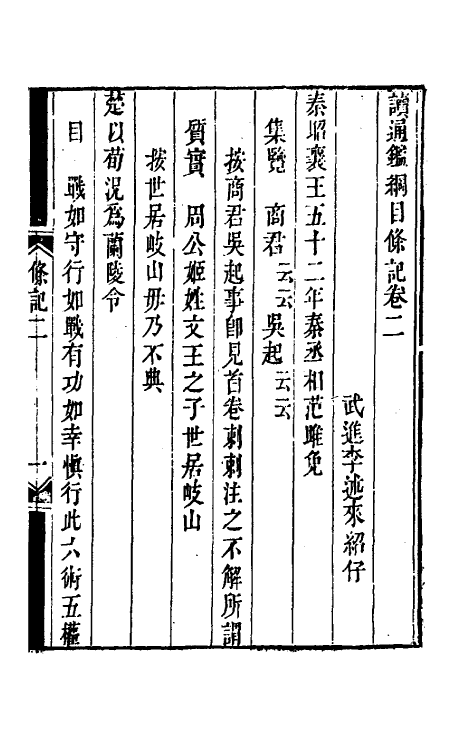 讀通鑑綱目條記卷二
武進李述來紹仔
秦昭襄王五十二年秦丞相范雎免
集覽　商君云云吳起云云
按商君吳起事卽見首卷剌剌注之不解所謂
質實　周公姬姓文王之子世居岐山
按世居岐山毋乃不典
楚以荀況爲蘭陵令
目　戰如守行如戰有功如幸愼行此六術五權
條記二
一